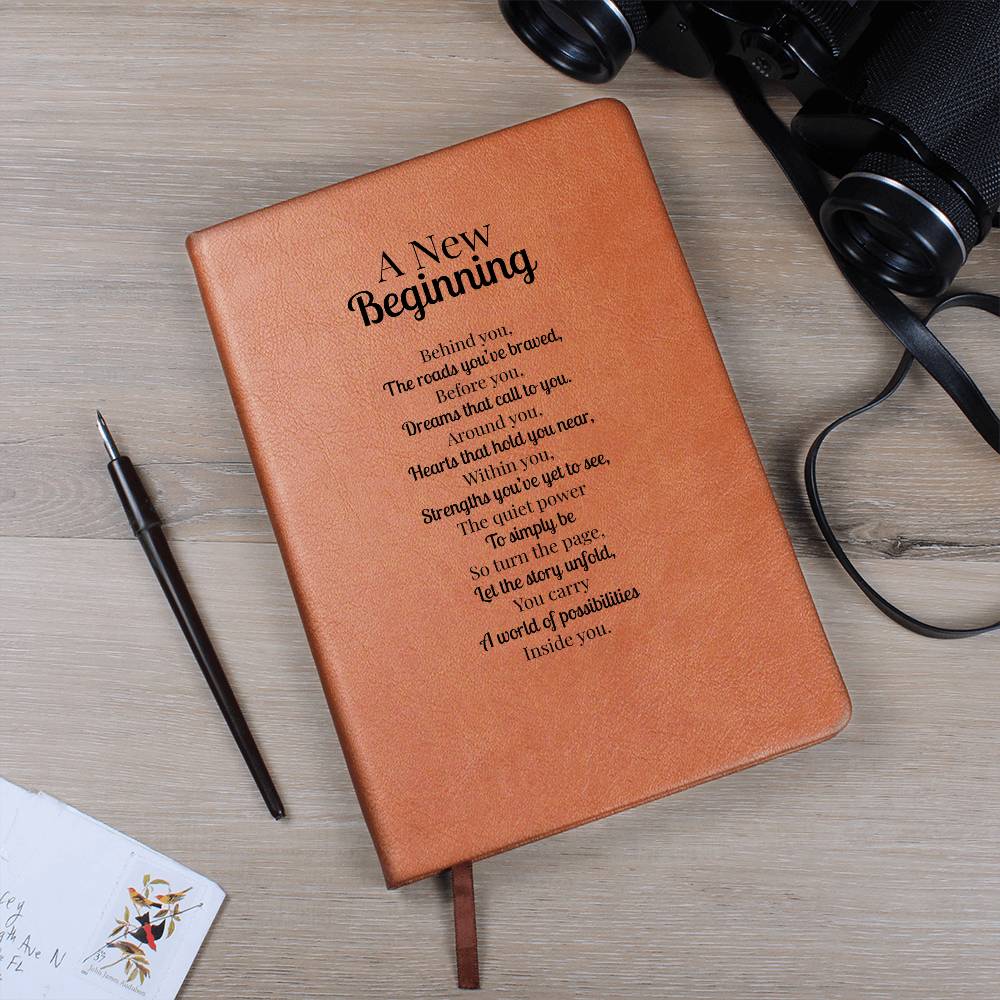 A New
Beginning
Behind you,
The roads you've braved,
Before you,
Dreams that call to you.
Around you,
Hearts that hold you near,
Within you,
Strengths you've yet to see,
The quiet power
To simply be
So turn the page,
Let the story unfold,
You carry
A world of possibilities
Inside you.
Ave N
FL
37
John James Audubon